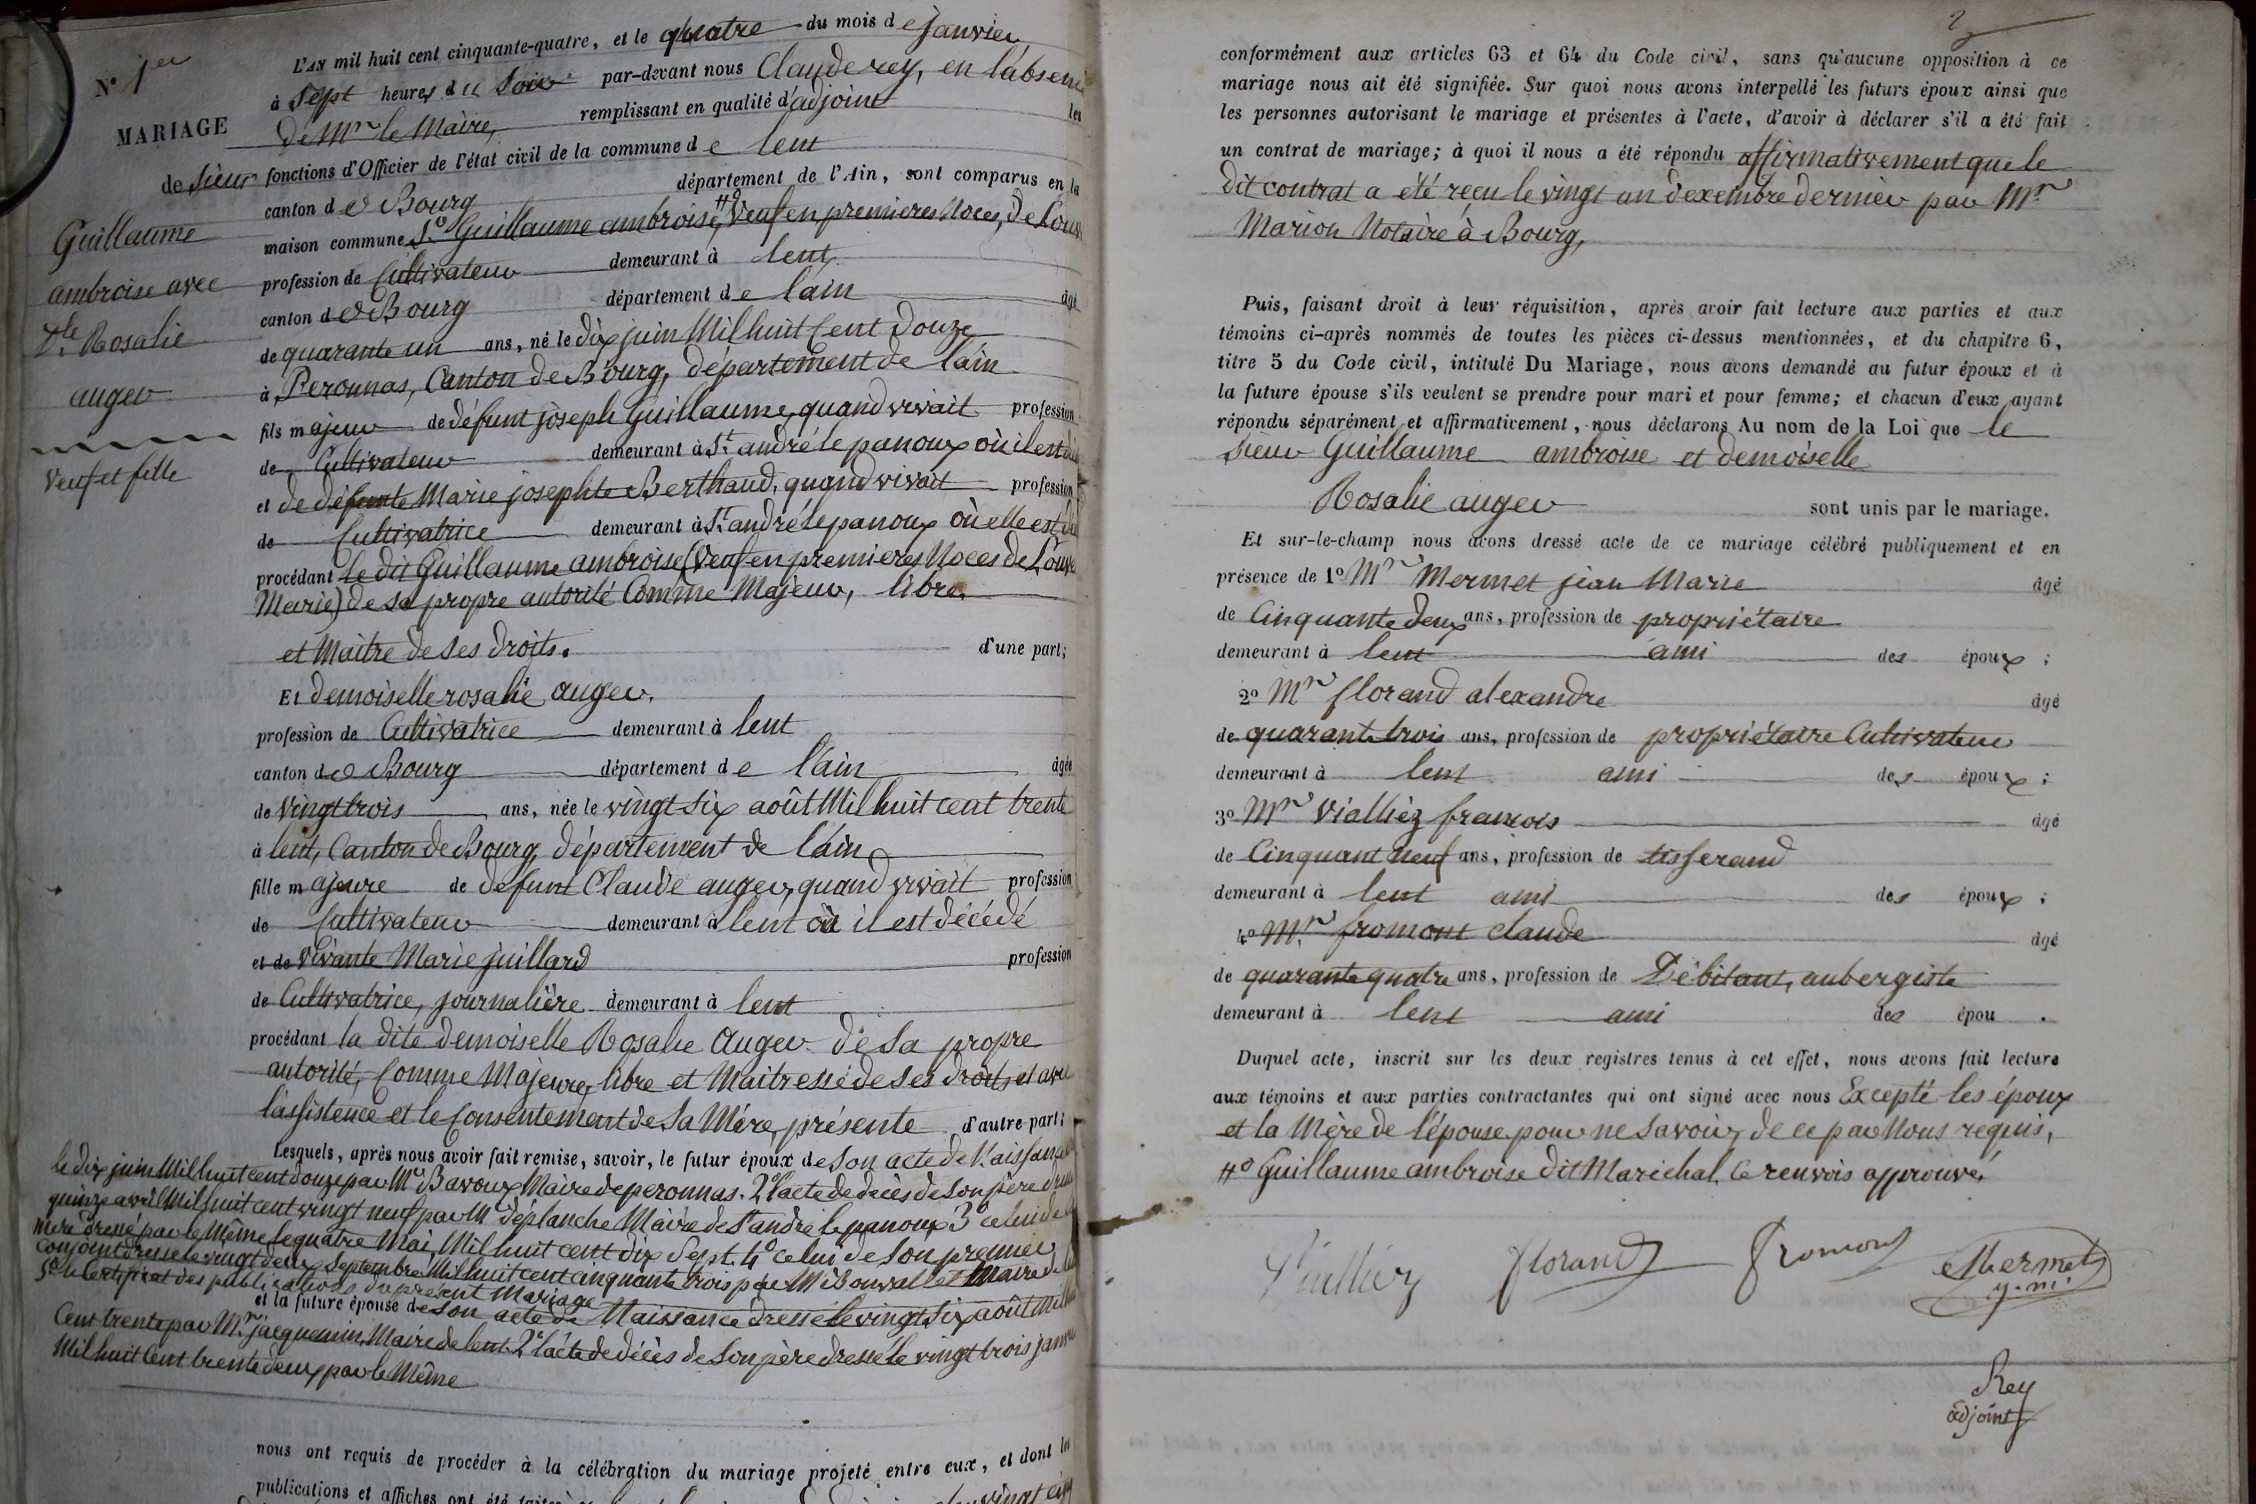 N° 1er
MARIAGE
de Sieur
Guillaume
ambroise avec
Dlle Rosalie
auger
veuf et fille
L'AN mil huit cent cinquante-quatre, et le quatre du mois de janvier
à Sept heures du Soir par-devant nous Claude rey, en l'absence
de Mr le Maire, remplissant en qualité d'adjoint les
fonctions d'Officier de l'état civil de la commune de lent
canton de Bourg département de l'Ain, sont comparus en la
maison commune 1° Guillaume ambroise, #° Veuf en premieres Noces, de Louv
profession de Cultivateur demeurant à lent
canton de Bourg département de lain âgé
de quarante un ans, né le dix juin Mil huit Cent Douze
à Peronnas, Canton de Bourg, département de l'ain
fils majeur de défunt joseph Guillaume, quand vivait profession
de Cultivateur demeurant à St andré le panoux où il est
et de défunte Marie josephte Berthaud, quand vivait profession
de Cultivatrice demeurant à St andré le panoux où elle est
procédant le dit Guillaume ambroise (Veuf en premieres Noces de Louv
Marie) de sa propre autorité Comme Majeur, libre
et Maitre de ses droits. d'une part;
Et demoiselle rosalie auger.
profession de Cultivatrice demeurant à lent
canton de Bourg département de l'ain âgée
de Vingt trois ans, née le vingt six août Mil huit cent trente
à lent, Canton de Bourg, département de l'ain
fille majeure de defunt Claude auger, quand vivait profession
de Cultivateur demeurant à lent où il est décédé
et de Vivante Marie juillard profession
de Cultivatrice, journalière demeurant à lent
procédant la dite demoiselle Rosalie Auger de sa propre
autorité, Comme Majeure, libre et Maitresse de ses droits et avec
l'assistence et le Consentement de sa Mère, présente d'autre part;
Lesquels, après nous avoir fait remise, savoir, le futur époux de son acte de Naissance
le dix juin Mil huit cent douze par Mr Bavoux Maire de peronnas. 2° l'acte de décès de son père
quinze avril Mil huit cent vingt neuf par Mr déplanche Maire de St andré le panoux 3° celui de
mère dressé par le Même le quatre Mai Mil huit cent dix Sept. 4° celui de son premier
conjoint dressé le vingt deux Septembre Mil huit cent cinquante trois par Mr Maire de
5° le Certificat des publications du présent Mariage
et la future épouse de son acte de Naissance dressé le vingt Six août Mil
Cent trente par Mr jacquemin Maire de lent. 2° l'acte de décès de son père dressé le vingt trois janv
Mil huit Cent trente deux par le Même
nous ont requis de procéder à la célébration du mariage projeté entre eux, et dont les
publications et affiches ont été faites
2
conformément aux articles 63 et 64 du Code civil, sans qu'aucune opposition à ce
mariage nous ait été signifiée. Sur quoi nous avons interpellé les futurs époux ainsi que
les personnes autorisant le mariage et présentes à l'acte, d'avoir à déclarer s'il a été fait
un contrat de mariage; à quoi il nous a été répondu affirmativement que le
dit contrat a été reçu le vingt un dexembre dernier par Mr
Marion Notaire à Bourg,
Puis, faisant droit à leur réquisition, après avoir fait lecture aux parties et aux
témoins ci-après nommés de toutes les pièces ci-dessus mentionnées, et du chapitre 6,
titre 5 du Code civil, intitulé Du Mariage, nous avons demandé au futur époux et à
la future épouse s'ils veulent se prendre pour mari et pour femme; et chacun d'eux ayant
répondu séparément et affirmativement, nous déclarons Au nom de la Loi que le
Sieur Guillaume ambroise et demoiselle
Rosalie auger sont unis par le mariage.
Et sur-le-champ nous avons dressé acte de ce mariage célébré publiquement et en
présence de 1° Mr Mermet jean Marie âgé
de Cinquante deux ans, profession de propriétaire
demeurant à lent ami des époux ;
2° Mr florand alexandre âgé
de quarante trois ans, profession de propriétaire Cultivateur
demeurant à lent ami des époux ;
3° Mr Vialliez francois âgé
de Cinquant neuf ans, profession de tisserand
demeurant à lent ami des époux ;
4° Mr fromont claude âgé
de quarante quatre ans, profession de Débitant, aubergiste
demeurant à lent ami des épou .
Duquel acte, inscrit sur les deux registres tenus à cet effet, nous avons fait lecture
aux témoins et aux parties contractantes qui ont signé avec nous Excepté les époux
et la Mère de l'épouse pour ne savoir, de ce par Nous requis,
#° Guillaume ambroise dit Marichal. Ce renvois approuvé.
florand fromont Mermet
j. m.
Rey
adjoint